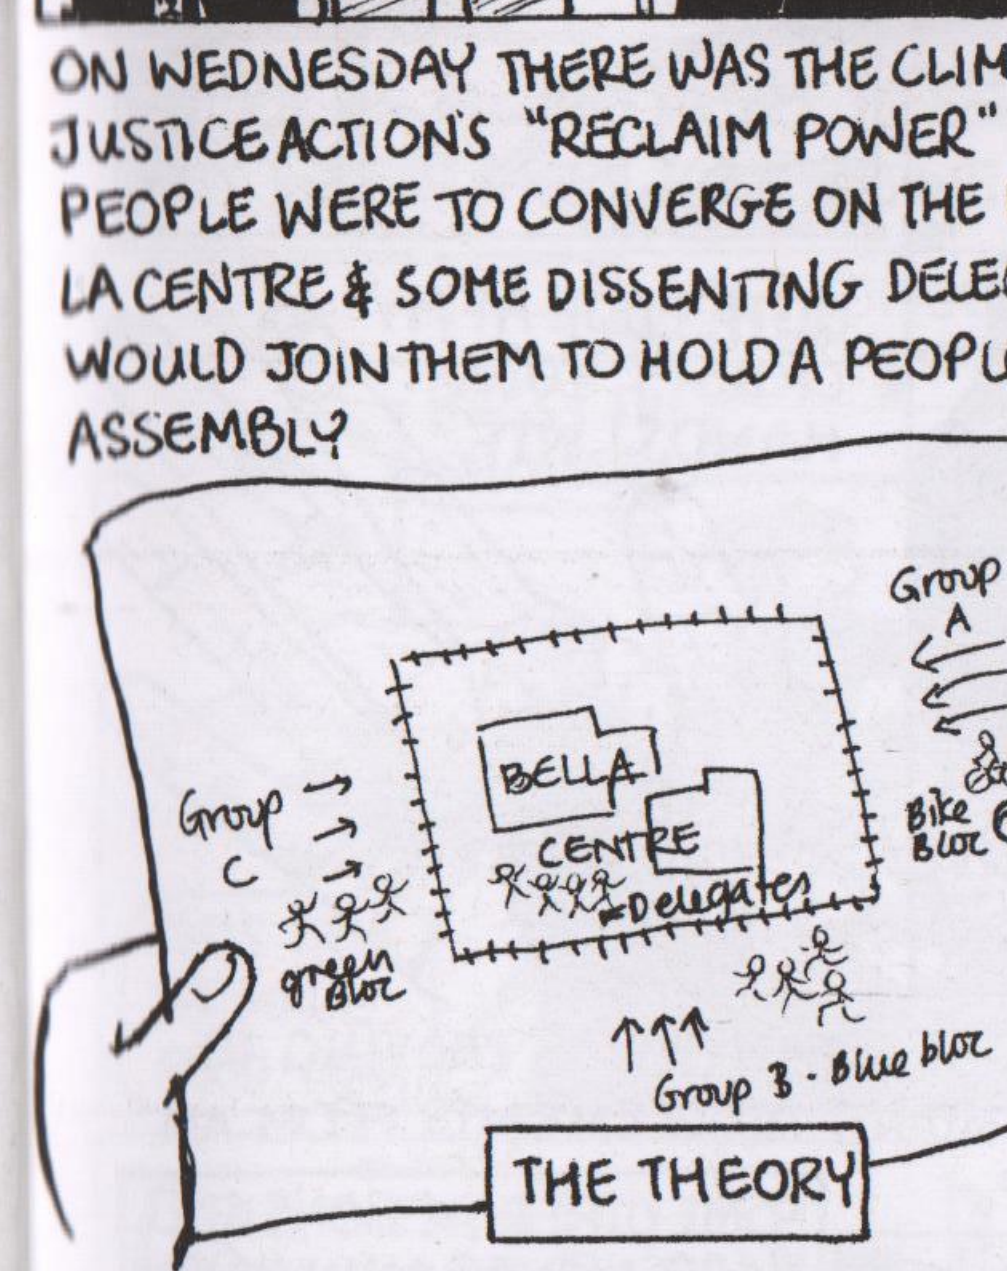 ON WEDNESDAY THERE WAS THE CLIM
JUSTICE ACTION'S "RECLAIM POWER"
PEOPLE WERE TO CONVERGE ON THE
LA CENTRE & SOME DISSENTING DELEG
WOULD JOIN THEM TO HOLD A PEOPL
ASSEMBLY
Group
A
BELLA
Group
C
Bike
Bloc
CENTRE
Delegates
green
Bloc
Group B - Blue bloc
THE THEORY